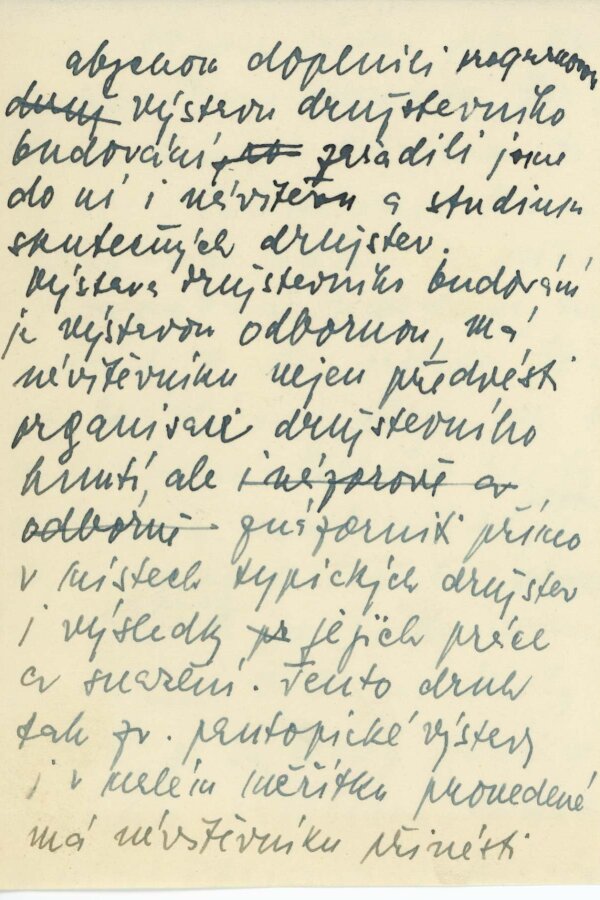 abychom doplnili
~~druž~~ výstavu družstevního
budování, zařadili jsme
do ní i návštěvu a studium
skutečných družstev.
Výstava družstevního budování
je výstavou odbornou, má
návštěvníku nejen předvésti
organisaci družstevního
hnutí, ale ~~i názorově a~~
~~odborně~~ znázornit přímo
v místech typických družstev
i výsledky ~~pr~~ jejich práce
a snažení. Tento druh
tak zv. pantopické výstavy
i v malém měřítku provedené
má návštěvníku přinésti